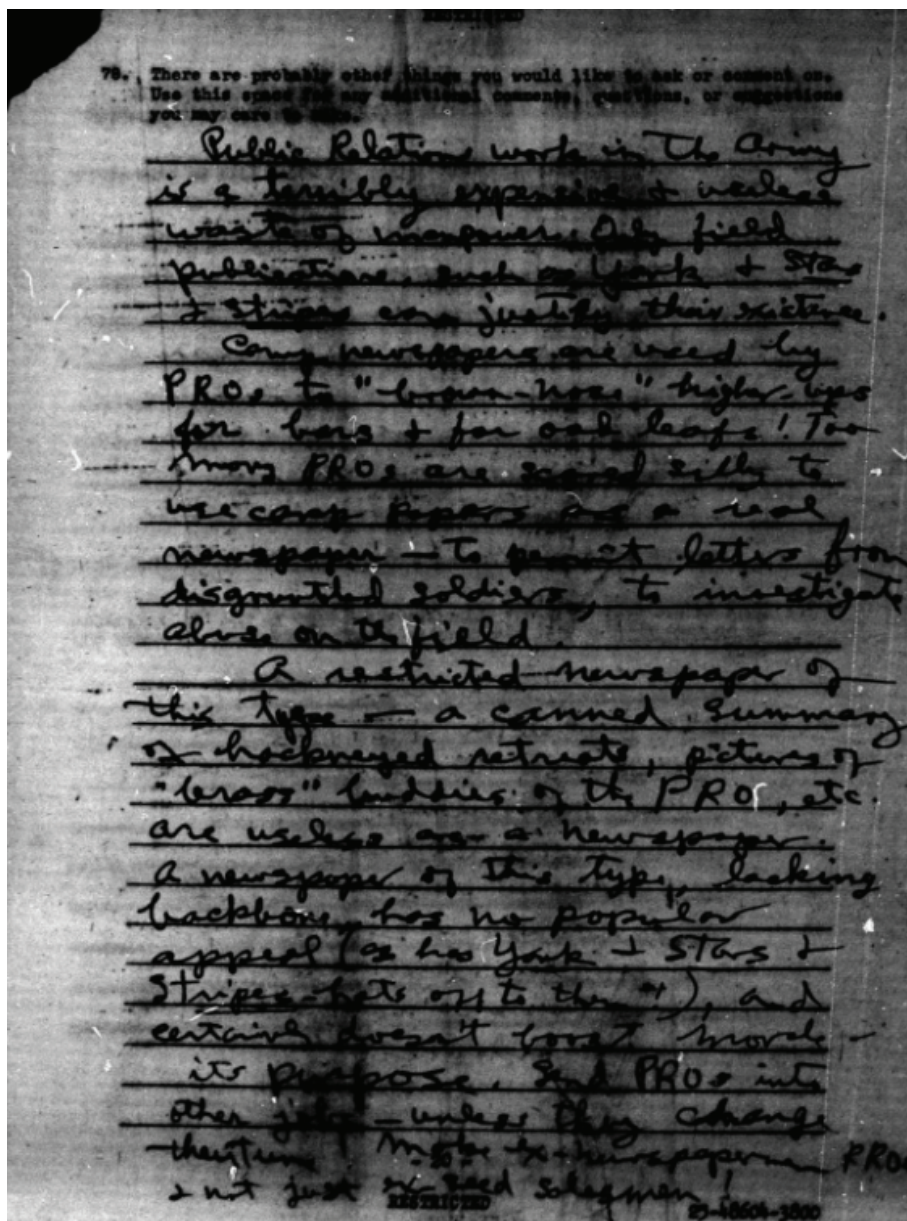 RESTRICTED
78. There are probably other things you would like to ask or comment on.
Use this space for any additional comments, questions, or suggestions
you may care to make.
Public Relations work in the Army
is a terribly expensive & useless
waste of manpower. Only field
publications, such as Yank & Stars
& Stripes can justify their existence.
Camp newspapers are used by
PROs to "brown-nose" higher-ups
for bars & for oak leafs! Too
many PROs are scared silly to
use camp papers as a real
newspaper — to permit letters from
disgruntled soldiers, to investigate
abuse on the field.
A restricted newspaper of
this type — a canned summary
of hackneyed retreats, pictures of
"brass" buddies of the PROs, etc.
are useless as a newspaper.
A newspaper of this type, lacking
backbone, has no popular
appeal (as has Yank & Stars &
Stripes - hats off to them), and
certainly doesn't boost morale -
its purpose. Send PROs into
other jobs - unless they change
their Make ex-newspapermen PROs
& not just salesmen!
RESTRICTED
23-48604-3800